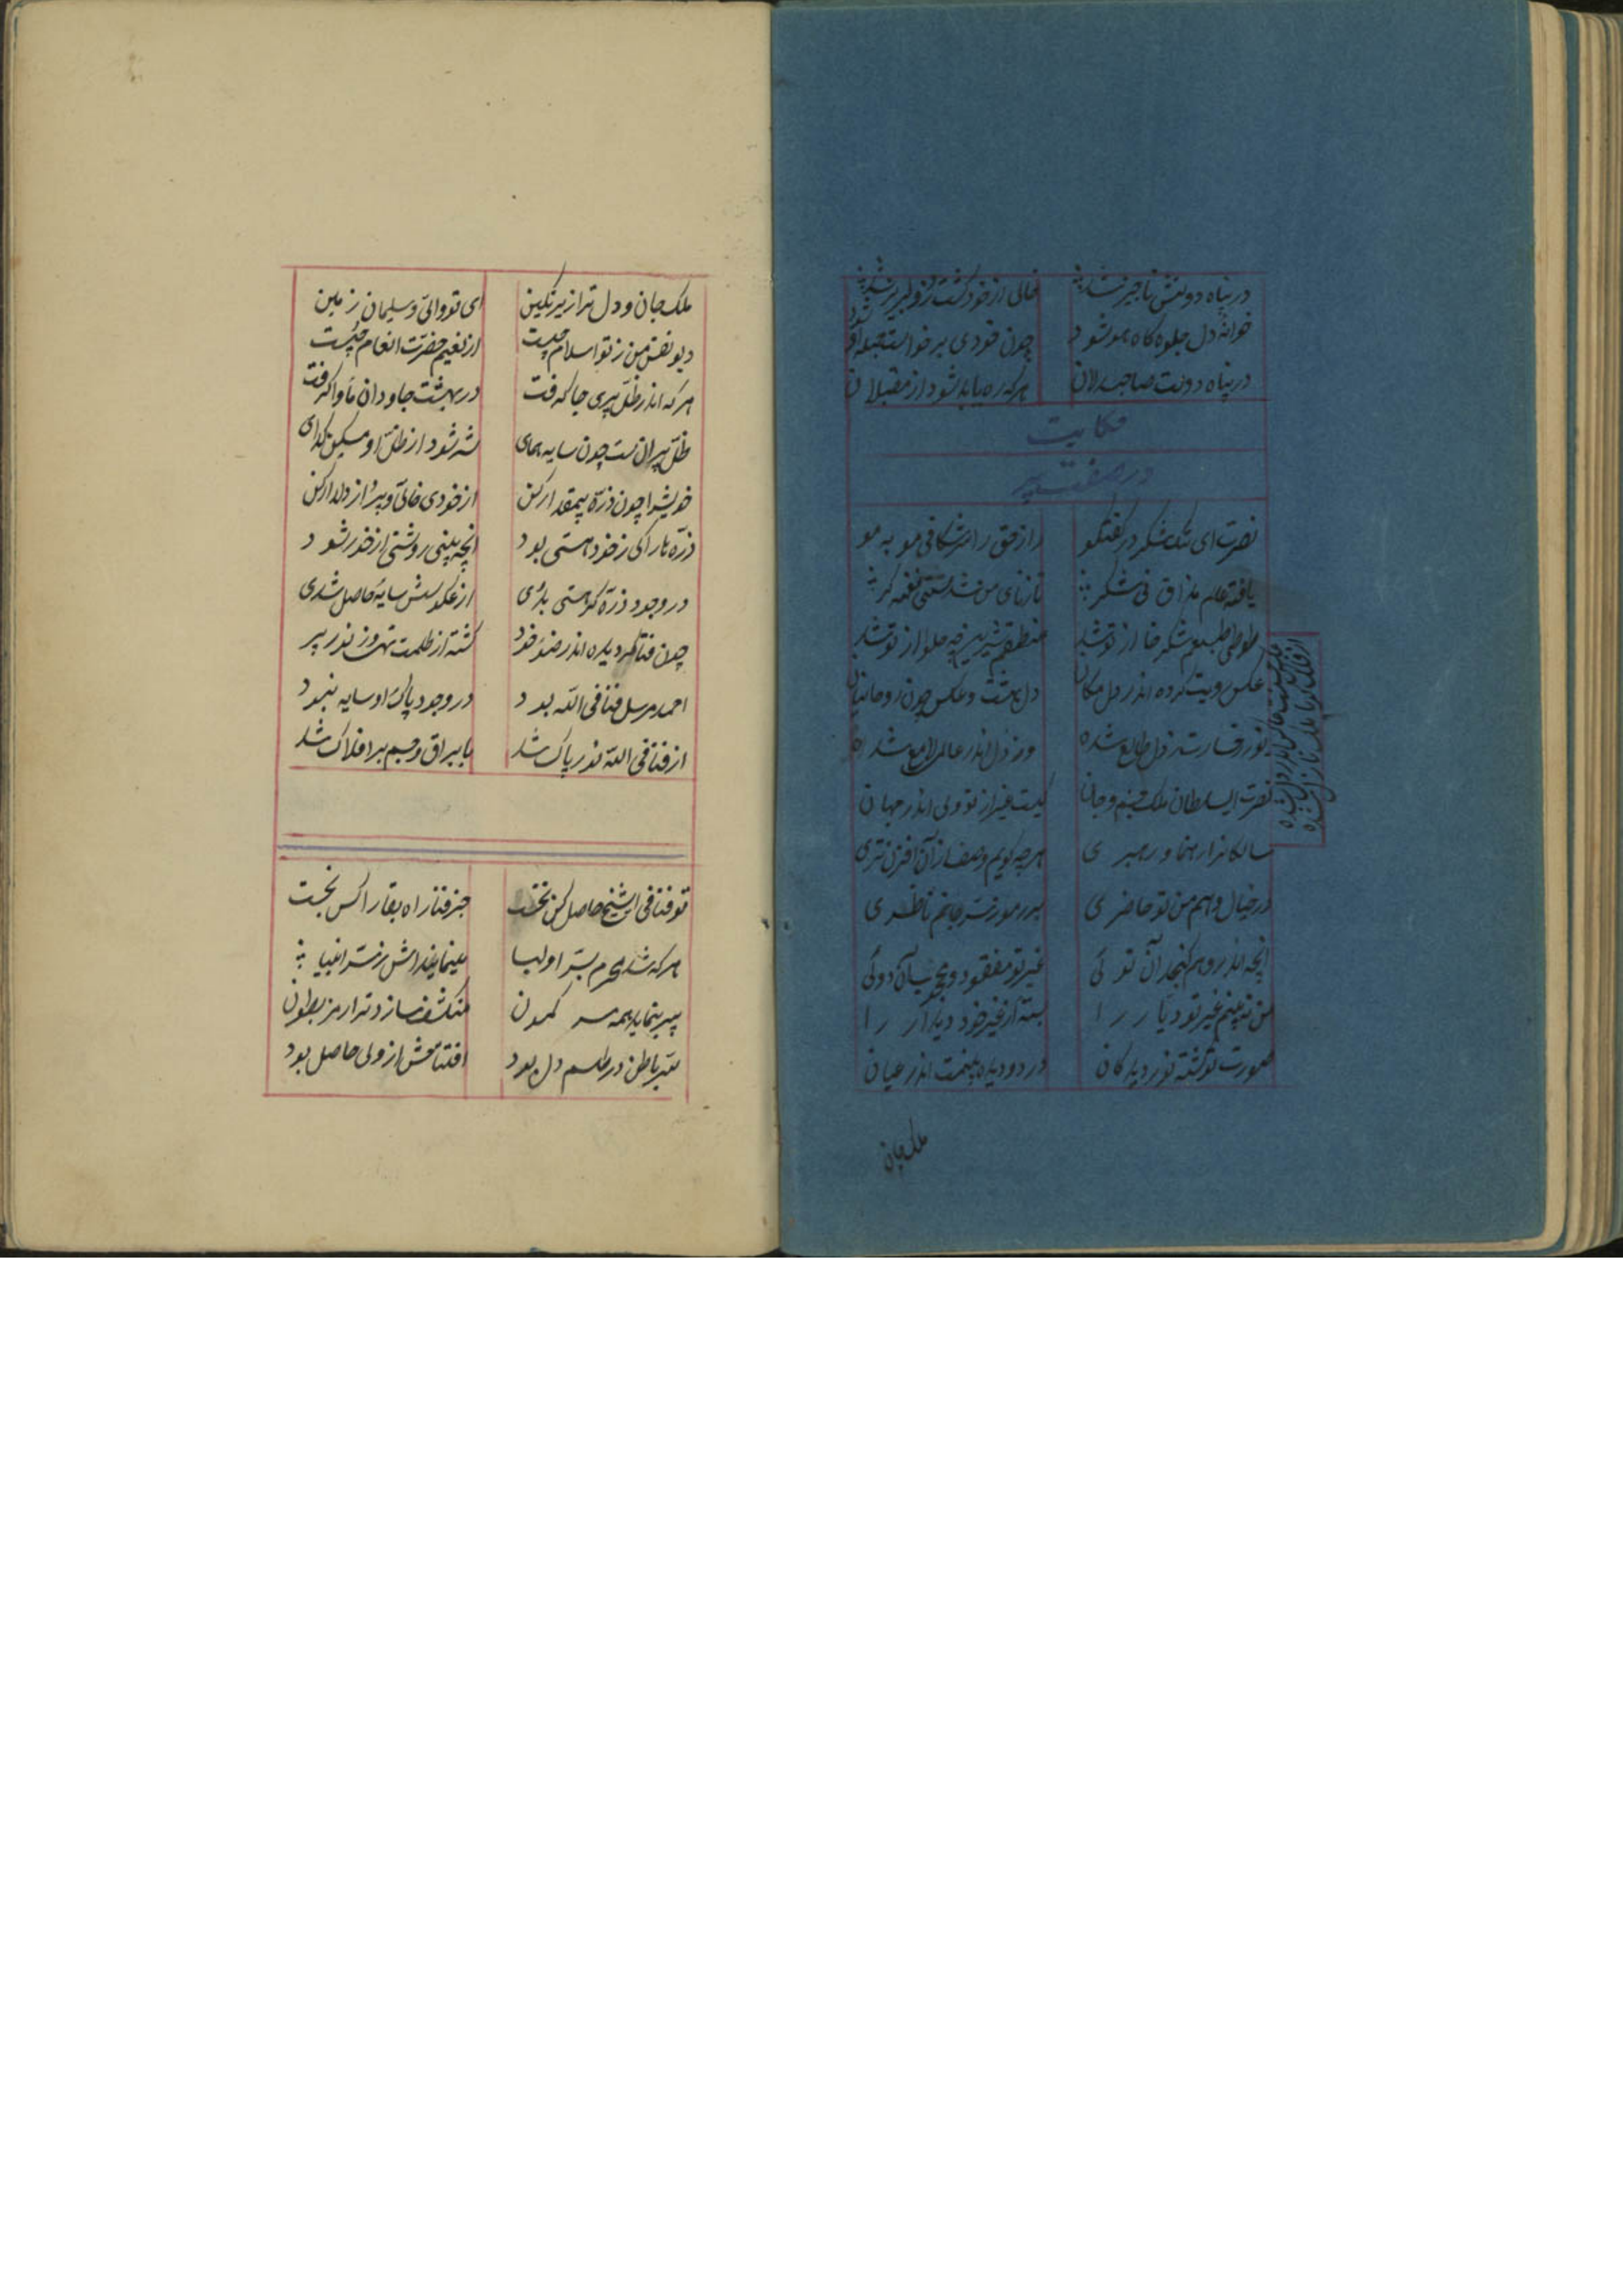 در پناه دولتش ناچیز شد خالی از خود گشت
خانه دل جلوه کاه هو شود چون خودی برخواست جمله او شود
در پناه دولت صاحبدلان هرکه ره یابد شود از مقبلان
حکایت
در صفت پیر
نصرت ای تنک شکر در کفتکو راز حق را شکافی مو به مو
یافته عالم مذاق نی شکر تا ز نای من شدستی نغمه کر
طوطی طبعم شکر خا از تو شد منطقم شیرین چه حلوا از تو شد
عکس رویت کرده اندر دل مکان دل بهشت و عکس چون روحانیان
نور رخسارت ز دل طالع شده وز دل اندر عالم لامع شده
نصرت ای سلطان ملک جسم و جان نیست غیر از تو ولی اندر جهان
سالکانرا رهنما و رهبری هرچه کویم وصفت از آن افزونتری
در خیال و هم من تو حاضری بر رموز سر جانم ناظری
انچه اندر وهم کنجد آن توئی غیر تو مفقود
من نه بینم غیر تو دیار را بسته از غیر خود دیدار را
صورت تو کشته نور دیدکان در دو دیده بینمت اندر عیان
ملک جان
ملک جان و دل ترا زیر نکین ای تو والی و سلیمان زمین
دیو نفس من ز تو اسلام جست از نعیم حضرتت انعام جست
هرکه اندر ظل پیری جا کرفت در بهشت جاودان ماوا کرفت
ظل پیران هست چون سایه همای شه شود از ظل او مسکین کدای
خویش را چون ذره بیمقدار کن از خودی خالی و پر از دلدار کن
ذره ها را کی ز خود هستی بود انچه بینی روشنی از خور شود
در وجود ذره کر هستی بدی از عکوسش سایه حاصل شدی
چون فنا کردیده اندر ضوء خود کشته از ظلمت تهی وز نور پر
احمد مرسل فنا فی الله بود در وجود پاک او سایه نبود
از فنا فی الله نور پاک شد با براق و جسم بر افلاک شد
تو فنا فی الشیخ حاصل کن نخست جز فنا راه بقا را کس نجست
هرکه شد محرم بسر اولیا مینماینداش ز سر انبیا
پیر بنماید همه سر کمون منکشف سازد ترا رمز بطون
سر باطن در طلسم دل بود افتتاحش از ولی حاصل بود